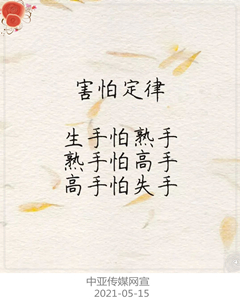 害怕定律
生手怕熟手
熟手怕高手
高手怕失手
中亚传媒网宣
2021-05-15